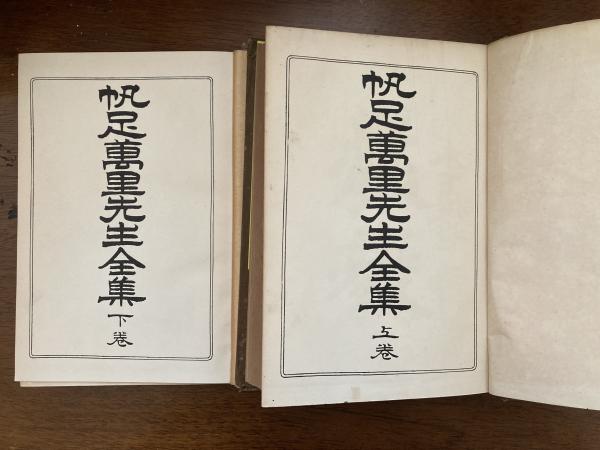 帆足萬里先生全集
下卷
帆足萬里先生全集
上卷